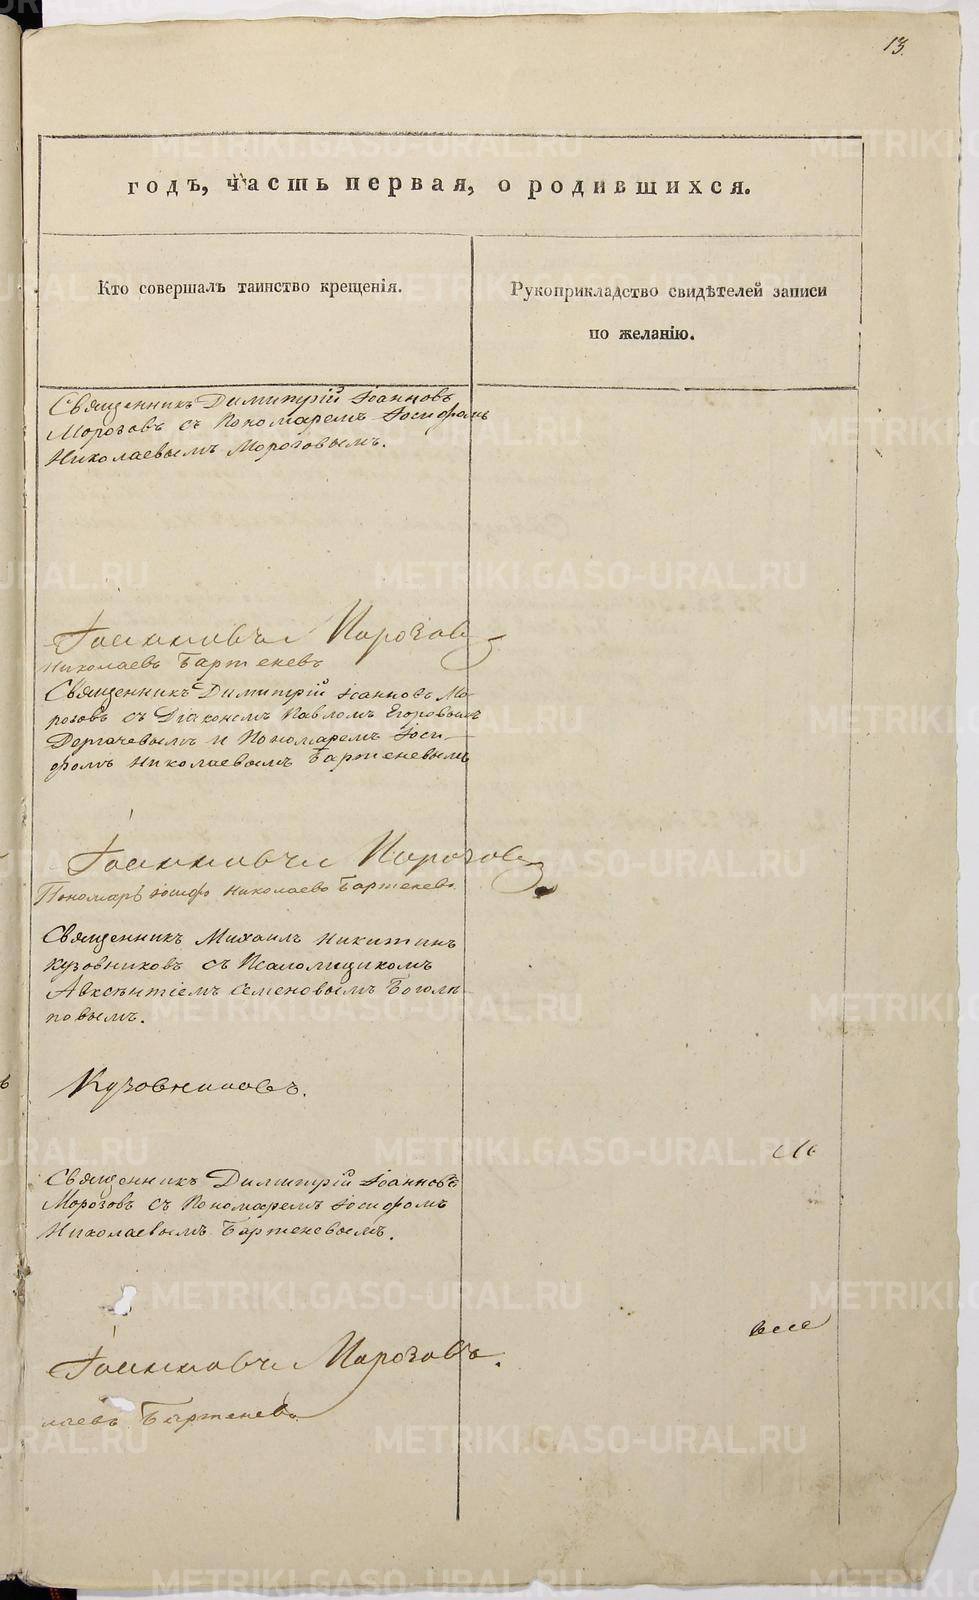 13.
годъ, часть первая, о родившихся.
Кто совершалъ таинство крещенія.
Рукоприкладство свидѣтелей записи
по желанію.
Священникъ Димитрій Іоанновъ
Морозовъ съ Пономаремъ Іосифомъ
Николаевымъ Морозовымъ.
Іоанновъ Морозовъ
Николаевъ Бартеневъ
Священникъ Димитрій Іоанновъ Мо-
розовъ съ Діакономъ Павломъ Егоровымъ
Дергачевымъ и Пономаремъ Іоси-
фомъ Николаевымъ Бартеневымъ
Іоанновъ Морозовъ
Пономарь Іосифъ Николаевъ Бартеневъ
Священникъ Михаилъ Никитинъ
Кузовниковъ съ Псаломщикомъ
Авксентіемъ Семеновымъ Боголѣ
повымъ.
Кузовниковъ.
Священникъ Димитрій Іоанновъ
Морозовъ съ Пономаремъ Іосифомъ
Николаевымъ Бартеневымъ.
Іоанновъ Морозовъ.
лаевъ Бартеневъ
METRIKI.GASO-URAL.RU